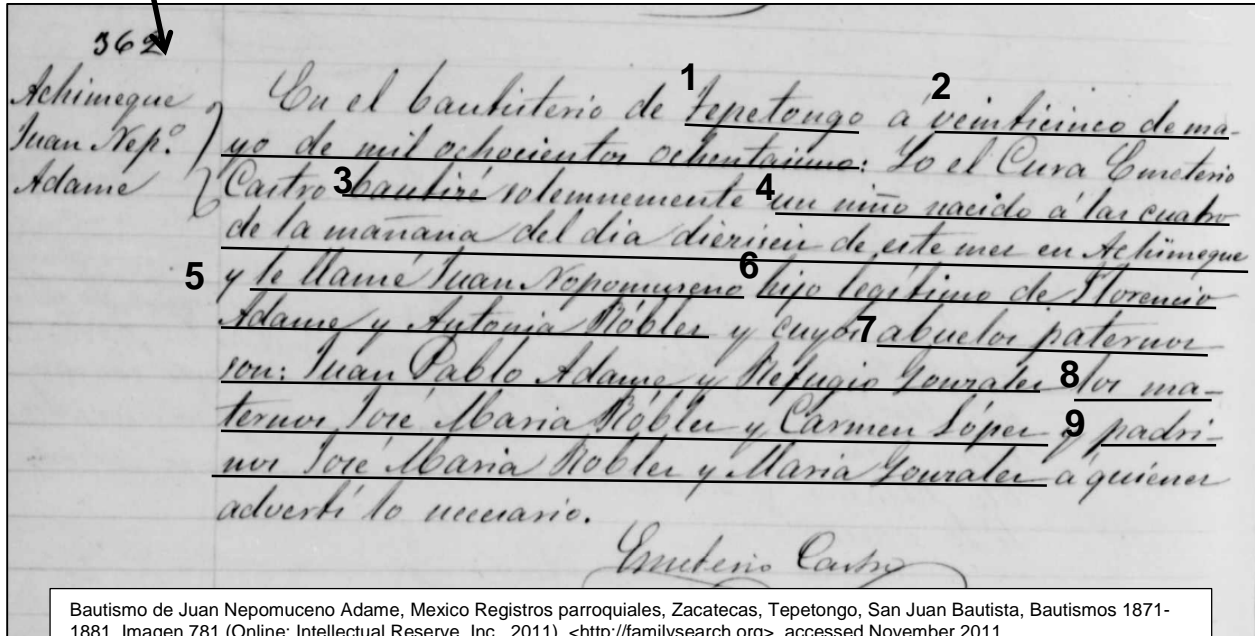 362
Achimeque
Juan Nep.º
Adame
En el bautisterio de 1 Tepetongo á 2 veinticinco de ma-
yo de mil ochocientos ochentaiuno: Yo el Cura Emeterio
Castro 3 bautizé solemnemente 4 un niño nacido á las cuatro
de la mañana del dia dieziseis de este mes en Achimeque
5 y le llamé Juan Nepomuseno 6 hijo legitimo de Florencio
Adame y Antonia Róbles y cuyos 7 abuelos paternos
son: Juan Pablo Adame y Refugio Gonzales 8 los ma-
ternos José Maria Róbles y Carmen López y 9 padri-
nos José Maria Robles y Maria Gonzales a quienes
advertí lo necesario.
Emeterio Castro
Bautismo de Juan Nepomuceno Adame, Mexico Registros parroquiales, Zacatecas, Tepetongo, San Juan Bautista, Bautismos 1871-
1881, Imagen 781 (Online: Intellectual Reserve, Inc., 2011), <http://familysearch.org>, accessed November 2011